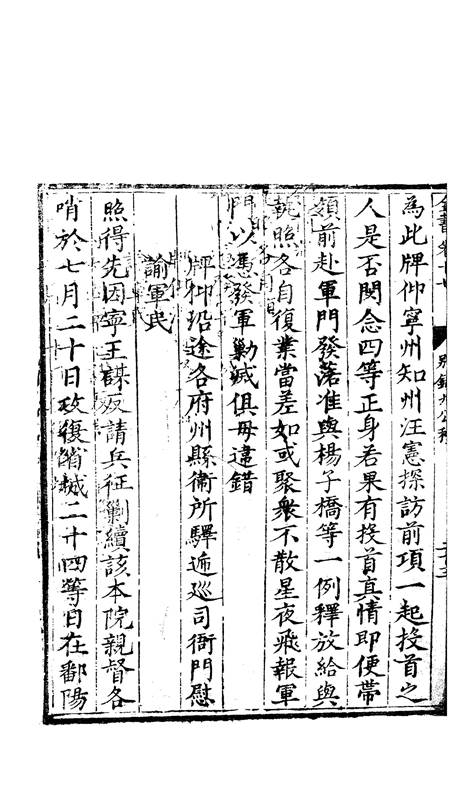 全書卷十七 別錄九公移
為此牌仰寧州知州汪憲探訪前項一起投首之
人是否閔念四等正身若果有投首真情即便帶
領前赴軍門發落准與楊子橋等一例釋放給與
執照各自復業當差如或聚衆不散星夜飛報軍
門以憑發軍勦滅俱毋違錯
牌仰沿途各府州縣衛所驛遞廵司衙門慰
諭軍民
照得先因寧王謀反請兵征剿續該本院親督各
哨於七月二十日攻復省城二十四等日在鄱陽